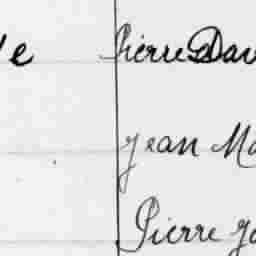 e Pierre Dav
Jean Ma
Pierre Ja